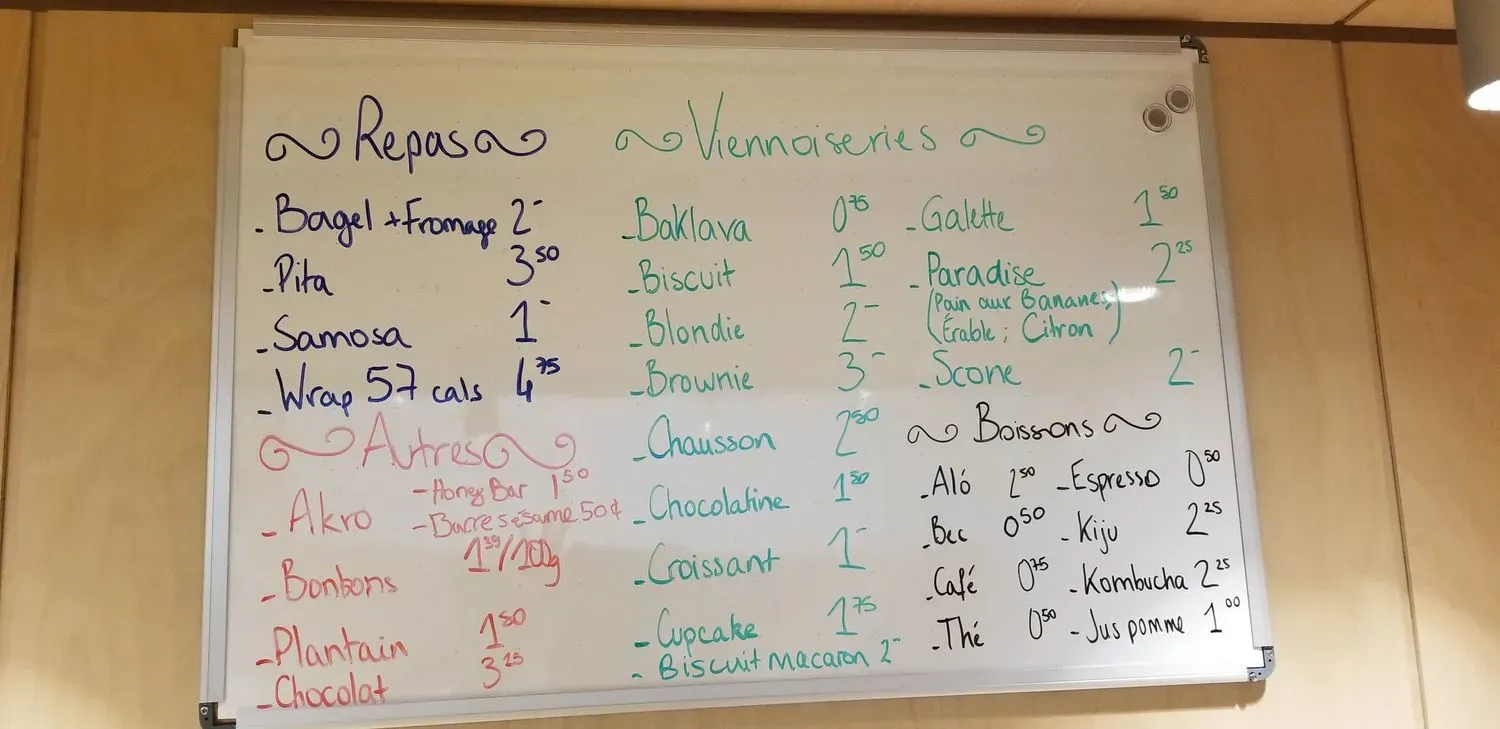 Repas
- Bagel + Fromage 2-
- Pita 3 50
- Samosa 1-
- Wrap 57 cals 4 75
Autres
- Akro
- Honey Bar 1 50
- Barre sésame 50¢
- Bonbons 1 39/100g
- Plantain 1 50
- Chocolat 3 25
Viennoiseries
- Baklava 0 75
- Biscuit 1 50
- Blondie 2-
- Brownie 3-
- Chausson 2 50
- Chocolatine 1 50
- Croissant 1-
- Cupcake 1 75
- Biscuit macaron 2-
- Galette 1 50
- Paradise 2 25
(Pain aux Bananes;
Érable; Citron)
- Scone 2-
Boissons
- Aló 2 50
- Bec 0 50
- Café 0 75
- Thé 0 50
- Espresso 0 50
- Kiju 2 25
- Kombucha 2 25
- Jus pomme 1 00